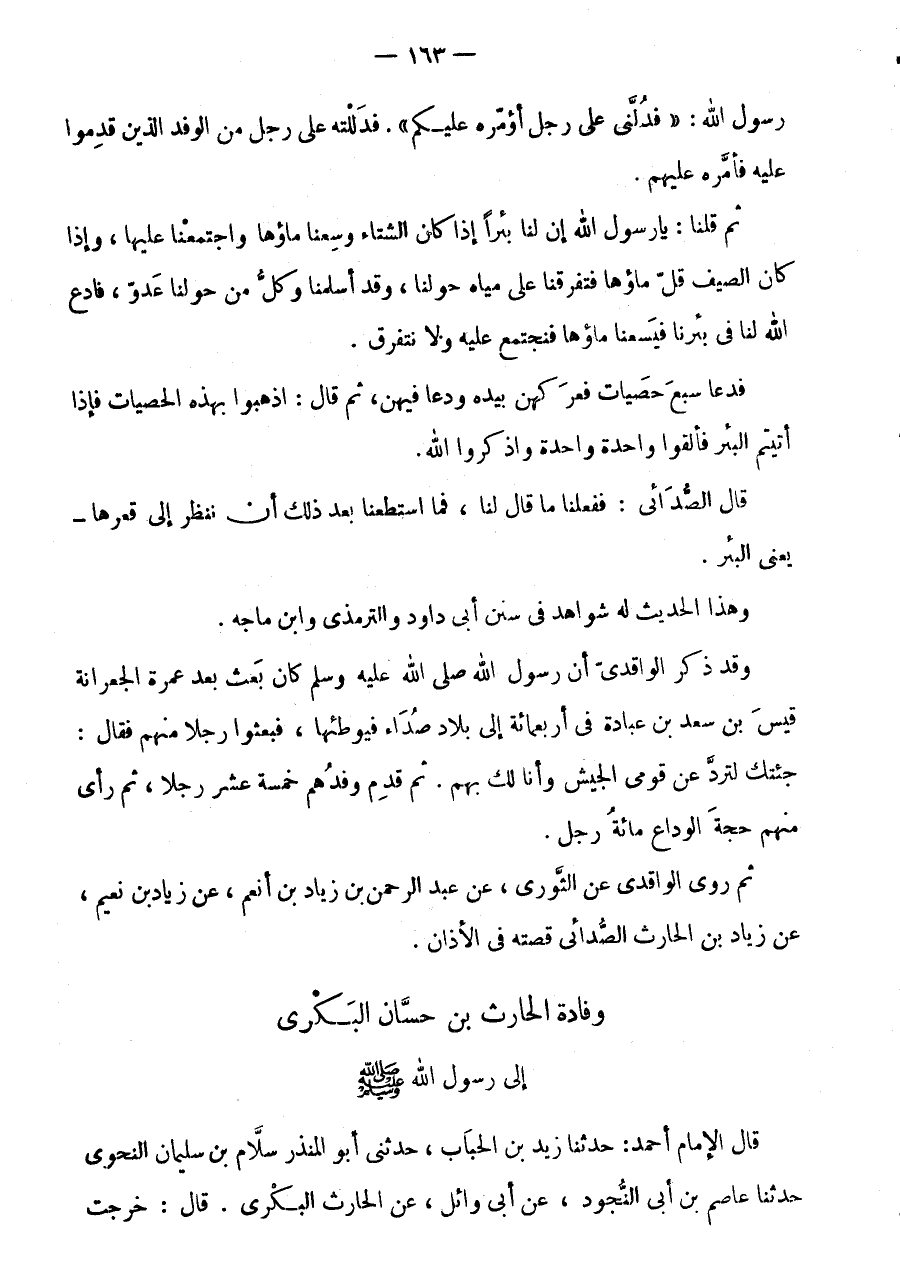 — ١٦٣ —
رسول الله : « فدُلَّنى على رجل أؤمّره عليكم» . فدَلَلْته على رجل من الوفد الذين قدِموا
عليه فأمَّره عليهم .
ثم قلنا : يارسول الله إن لنا بئراً إذا كان الشتاء وسِعنا ماؤها واجتمعْنا عليها ، وإذا
كان الصيف قلّ ماؤها فتفرقنا على مياه حولنا ، وقد أسلمنا وكلُّ من حولنا عَدوّ ، فادع
الله لنا فى بئرنا فيَسعنا ماؤها فنجتمع عليه ولا نتفرق .
فدعا سبعَ حصَيات فعرَكهن بيده ودعا فيهن، ثم قال : اذهبوا بهذه الحصيات فإذا
أتيتم البئر فألقوا واحدة واحدة واذكروا الله.
قال الصُّدَائى : ففعلنا ما قال لنا ، فما استطعنا بعد ذلك أن ننظر إلى قعرها ـ
يعنى البئر .
وهذا الحديث له شواهد فى سنن أبى داود والترمذى وابن ماجه .
وقد ذكر الواقدىّ أن رسول الله صلى الله عليه وسلم كان بَعَث بعد عمرة الجعرانة
قيسَ بن سعد بن عبادة فى أربعمائة إلى بلاد صُدَاء فيوطئها ، فبعثوا رجلا منهم فقال :
جئتك لتردَّ عن قومى الجيش وأنا لك بهم . ثم قدِم وفدُهم خمسة عشر رجلا ، ثم رأى
منهم حجةَ الوداع مائةُ رجل .
ثم روى الواقدى عن الثَّورى ، عن عبد الرحمن بن زياد بن أنعم ، عن زيادبن نعيم ،
عن زياد بن الحارث الصُّدائى قصته فى الأذان .
وفادة الحارث بن حسَّان البَكْرى
إلى رسول الله ﷺ
قال الإمام أحمد: حدثنا زيد بن الحبَاب ، حدثنى أبو المنذر سلَّام بن سليمان النحوى
حدثنا عاصم بن أبى النُّجود ، عن أبى وائل ، عن الحارث البكْرى . قال : خرجت